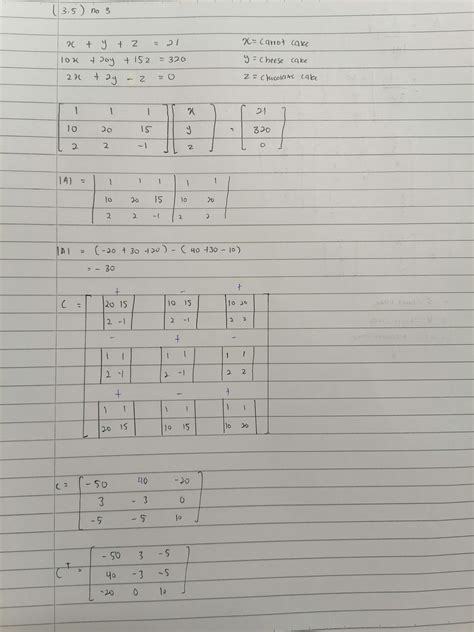 (3.5) no 3
x + y + z = 21 x = carrot cake
10x + 20y + 15z = 320 y = cheese cake
2x + 2y - z = 0 z = chocolate cake
1 1 1 x 21
10 20 15 y = 320
2 2 -1 z 0
|A| = 1 1 1 1 1
10 20 15 10 20
2 2 -1 2 2
|A| = (-20 + 30 + 20) - (40 + 30 - 10)
= - 30
+ - +
C = 20 15 10 15 10 20
2 -1 2 -1 2 2
- + -
1 1 1 1 1 1
2 -1 2 -1 2 2
+ - +
1 1 1 1 1 1
20 15 10 15 10 20
C = -50 40 -20
3 -3 0
-5 -5 10
C^T = -50 3 -5
40 -3 -5
-20 0 10